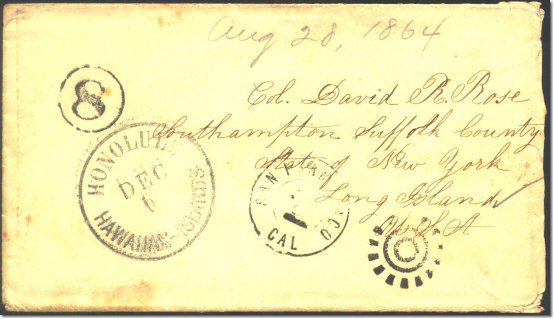 Aug 28, 1864
8
Col. David R. Rose
Southampton Suffolk County
State of New York
Long Island
U S A
HONOLULU
DEC
6
HAWAIIAN-ISLANDS
SAN FRANCISCO
CAL